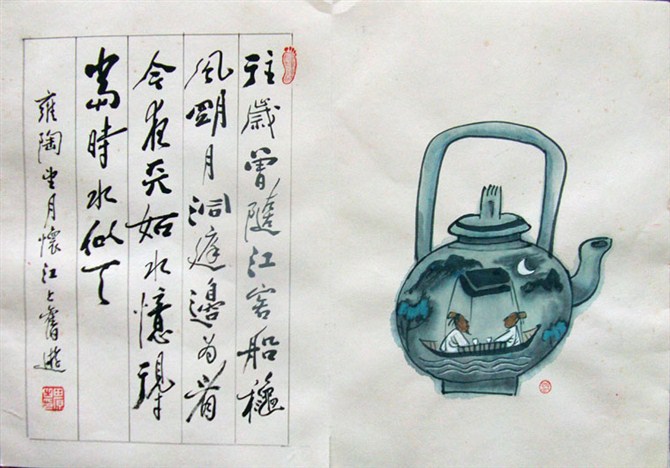 往歲曾隨江客船穐
風明月洞庭邊為看
今夜天如水憶得
當時水似天
雍陶望月懷江上舊遊